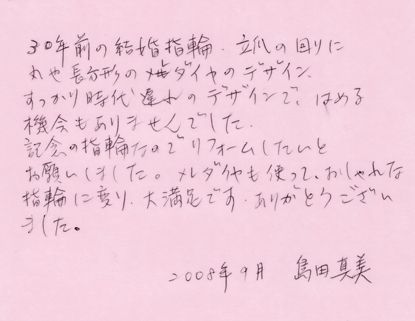 30年前の結婚指輪. 立爪の回りに
丸や長方形のメレダイヤのデザイン.
すっかり時代遅れのデザインで、はめる
機会もありませんでした.
記念の指輪なのでリフォームしたいと
お願いしました。メレダイヤも使って、おしゃれな
指輪に変り、大満足です. ありがとうござい
ました。
2008年9月 島田真美